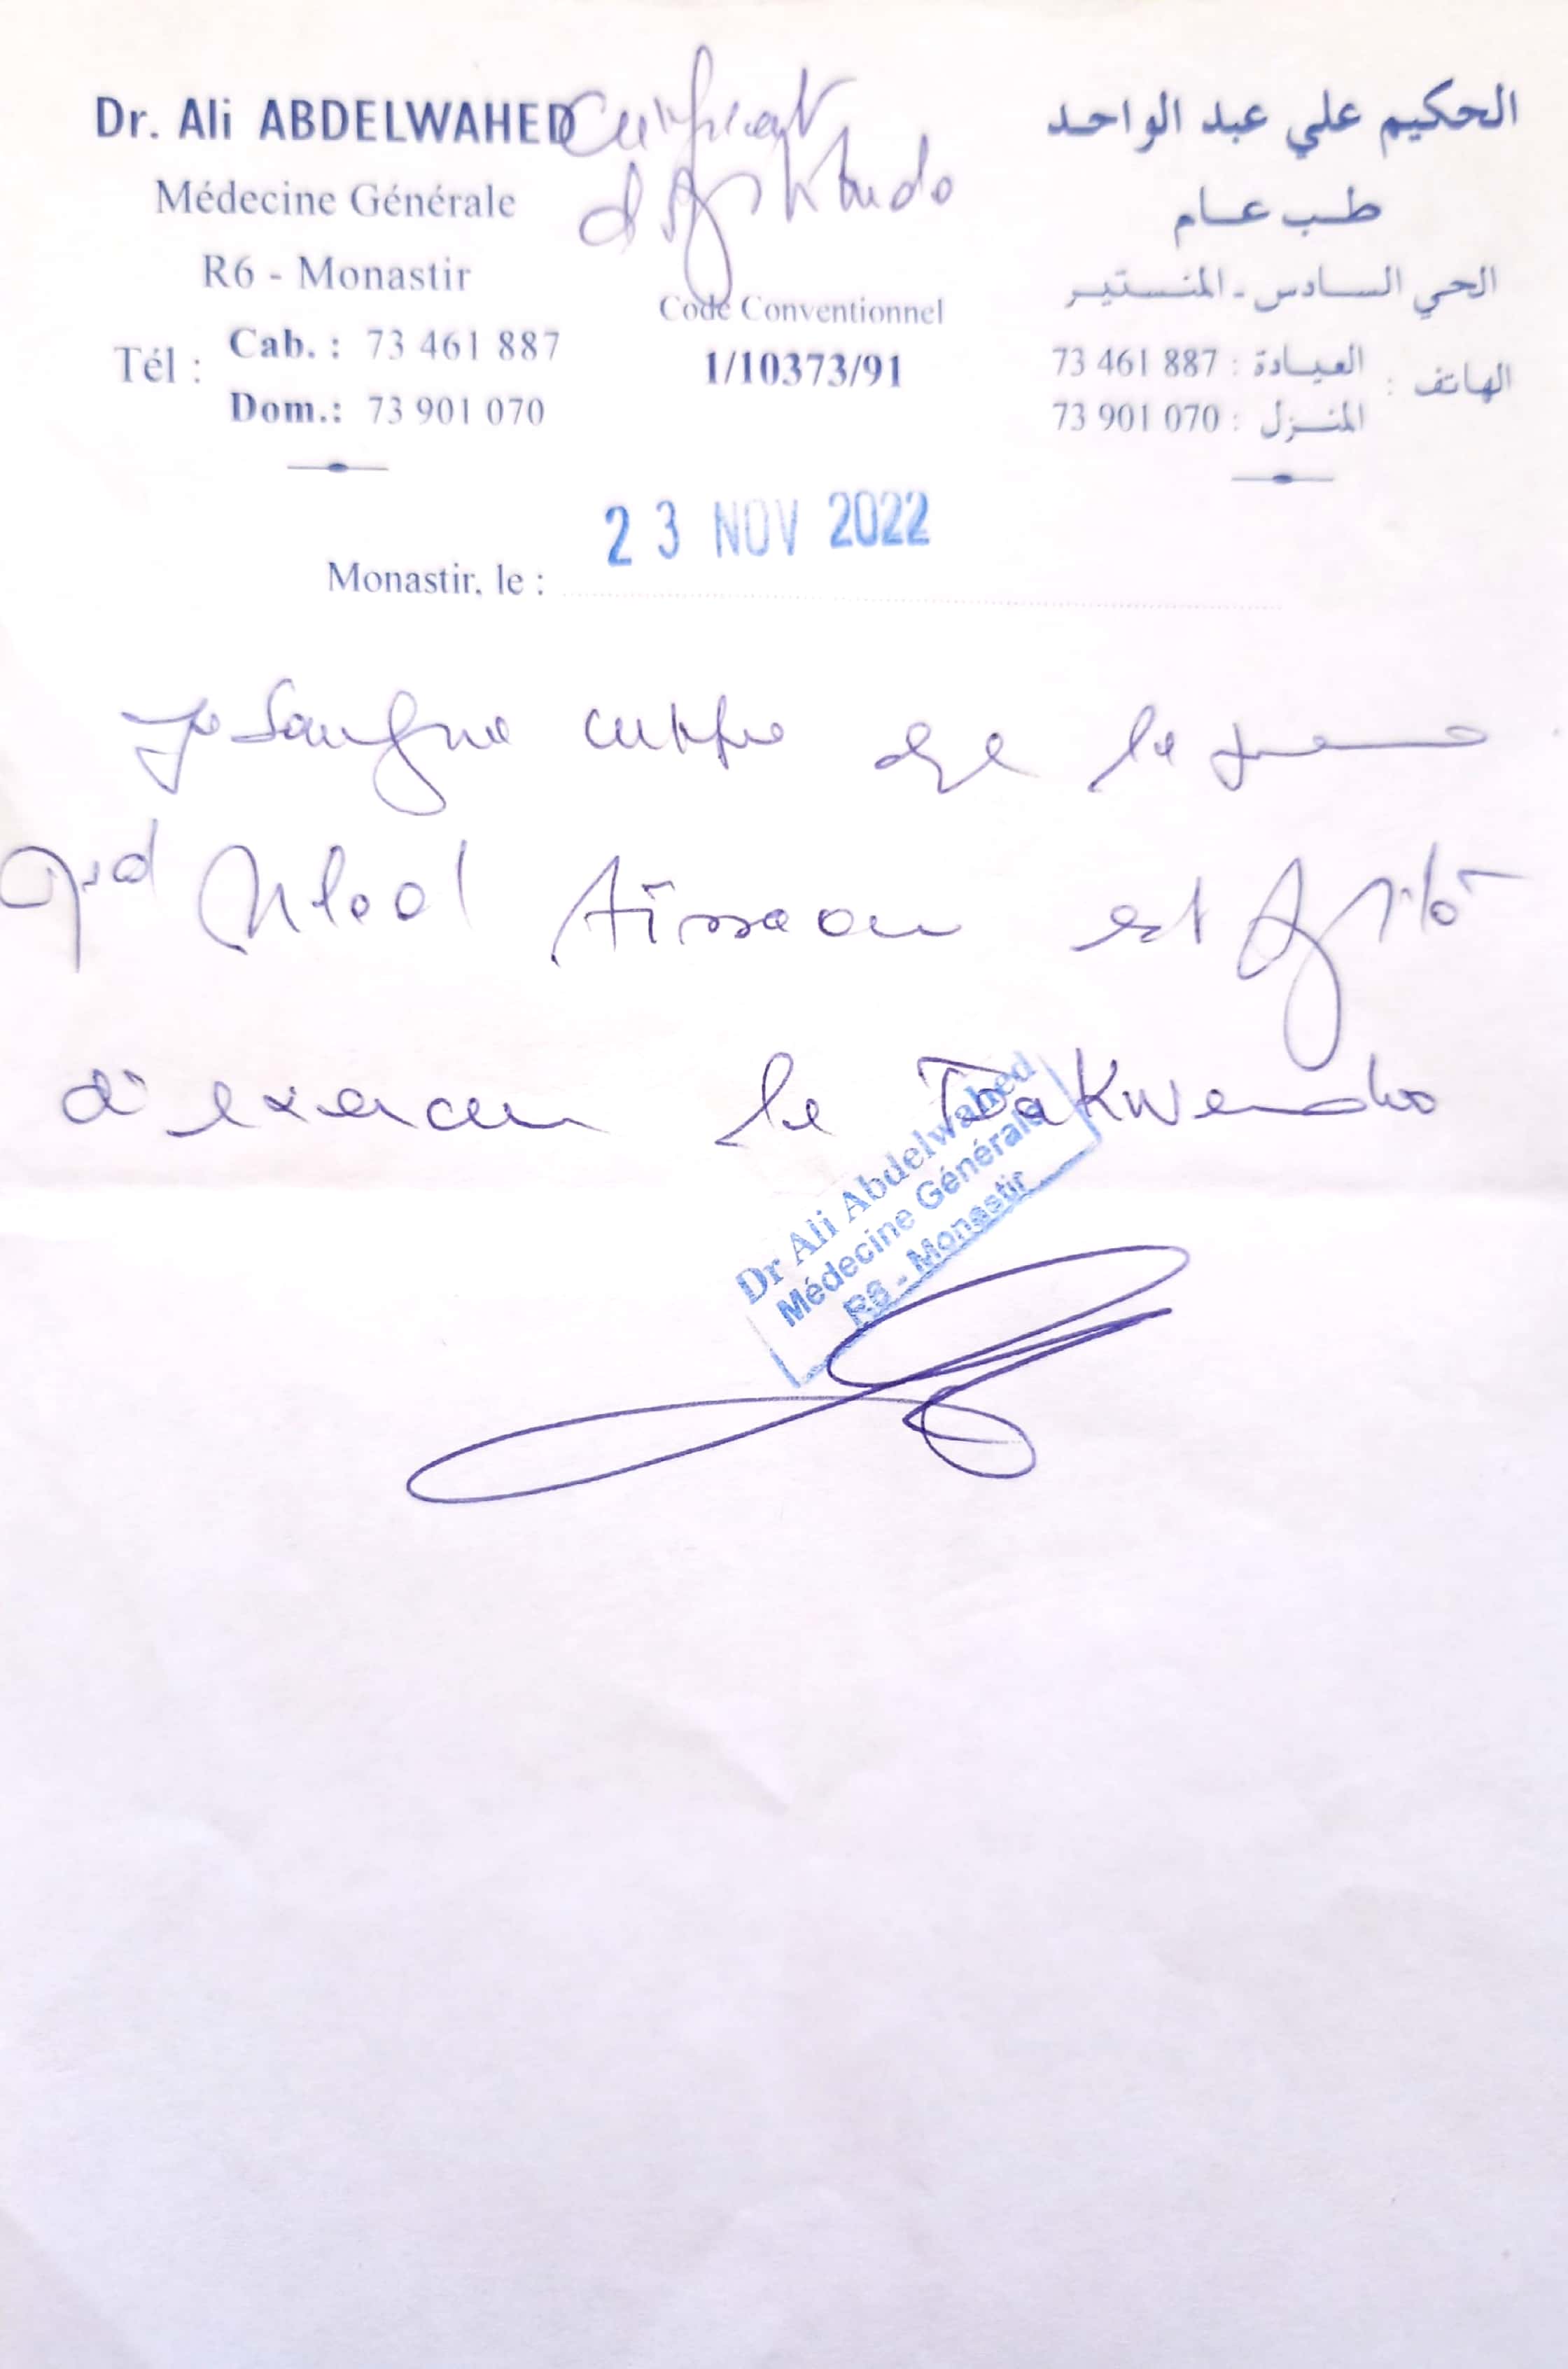 Dr. Ali ABDELWAHED
Médecine Générale
R6 - Monastir
Tél :
Cab. : 73 461 887
Dom.: 73 901 070
Certificat
d'Aptitude
Code Conventionnel
1/10373/91
الحكيم علي عبد الواحد
طب عام
الحي السادس - المنستير
الهاتف :
العيادة : 73 461 887
المنزل : 73 901 070
Monastir, le : 23 NOV 2022
Je certifie que le jeune
est
d'exercer le Taekwendo
Dr Ali Abdelwahed
Médecine Générale
R6 - Monastir